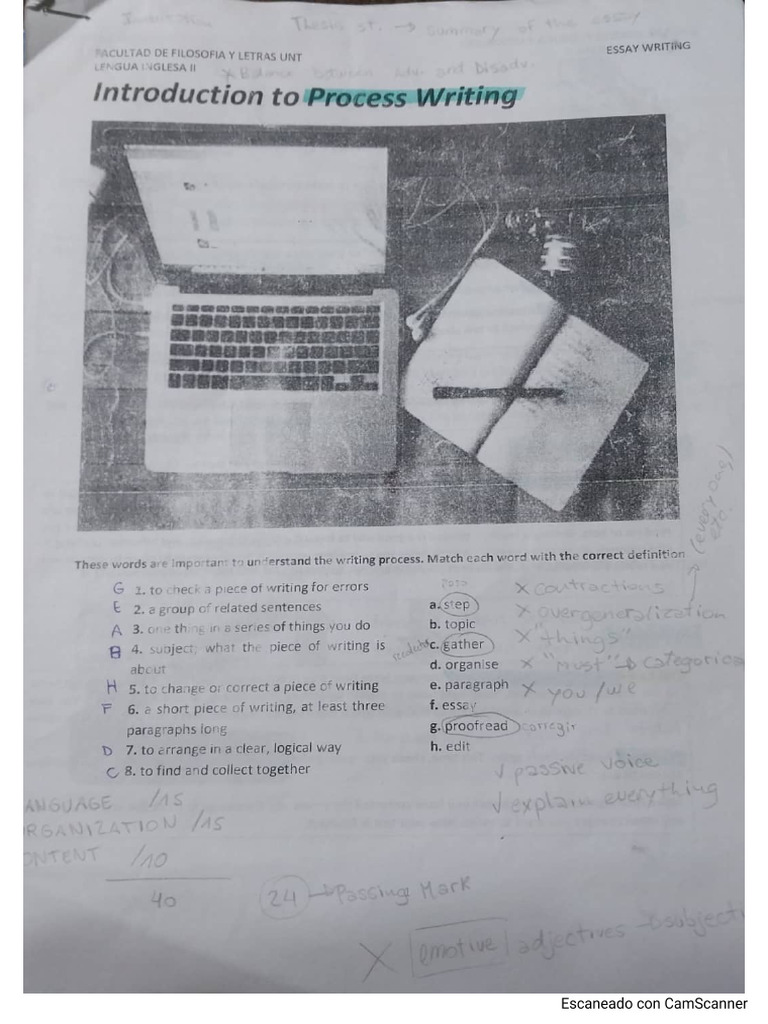 Thesis st. → summary of the essay
FACULTAD DE FILOSOFIA Y LETRAS UNT
ESSAY WRITING
LENGUA INGLESA II
x Balance between Adv. and Disadv.
Introduction to Process Writing
(everyone)
etc.
These words are important to understand the writing process. Match each word with the correct definition
G 1. to check a piece of writing for errors
E 2. a group of related sentences
A 3. one thing in a series of things you do
B 4. subject; what the piece of writing is
about
H 5. to change or correct a piece of writing
F 6. a short piece of writing, at least three
paragraphs long
D 7. to arrange in a clear, logical way
C 8. to find and collect together
paso
a. step
b. topic
c. gather
d. organise
e. paragraph
f. essay
g. proofread corregir
h. edit
x contractions
x overgeneralization
x "things"
x "Must" → categorica
x you/we
√ passive voice
√ explain everything
ANGUAGE /15
RGANIZATION /15
ONTENT /10
40
24 → Passing Mark
X emotive adjectives → subjecti
Escaneado con CamScanner